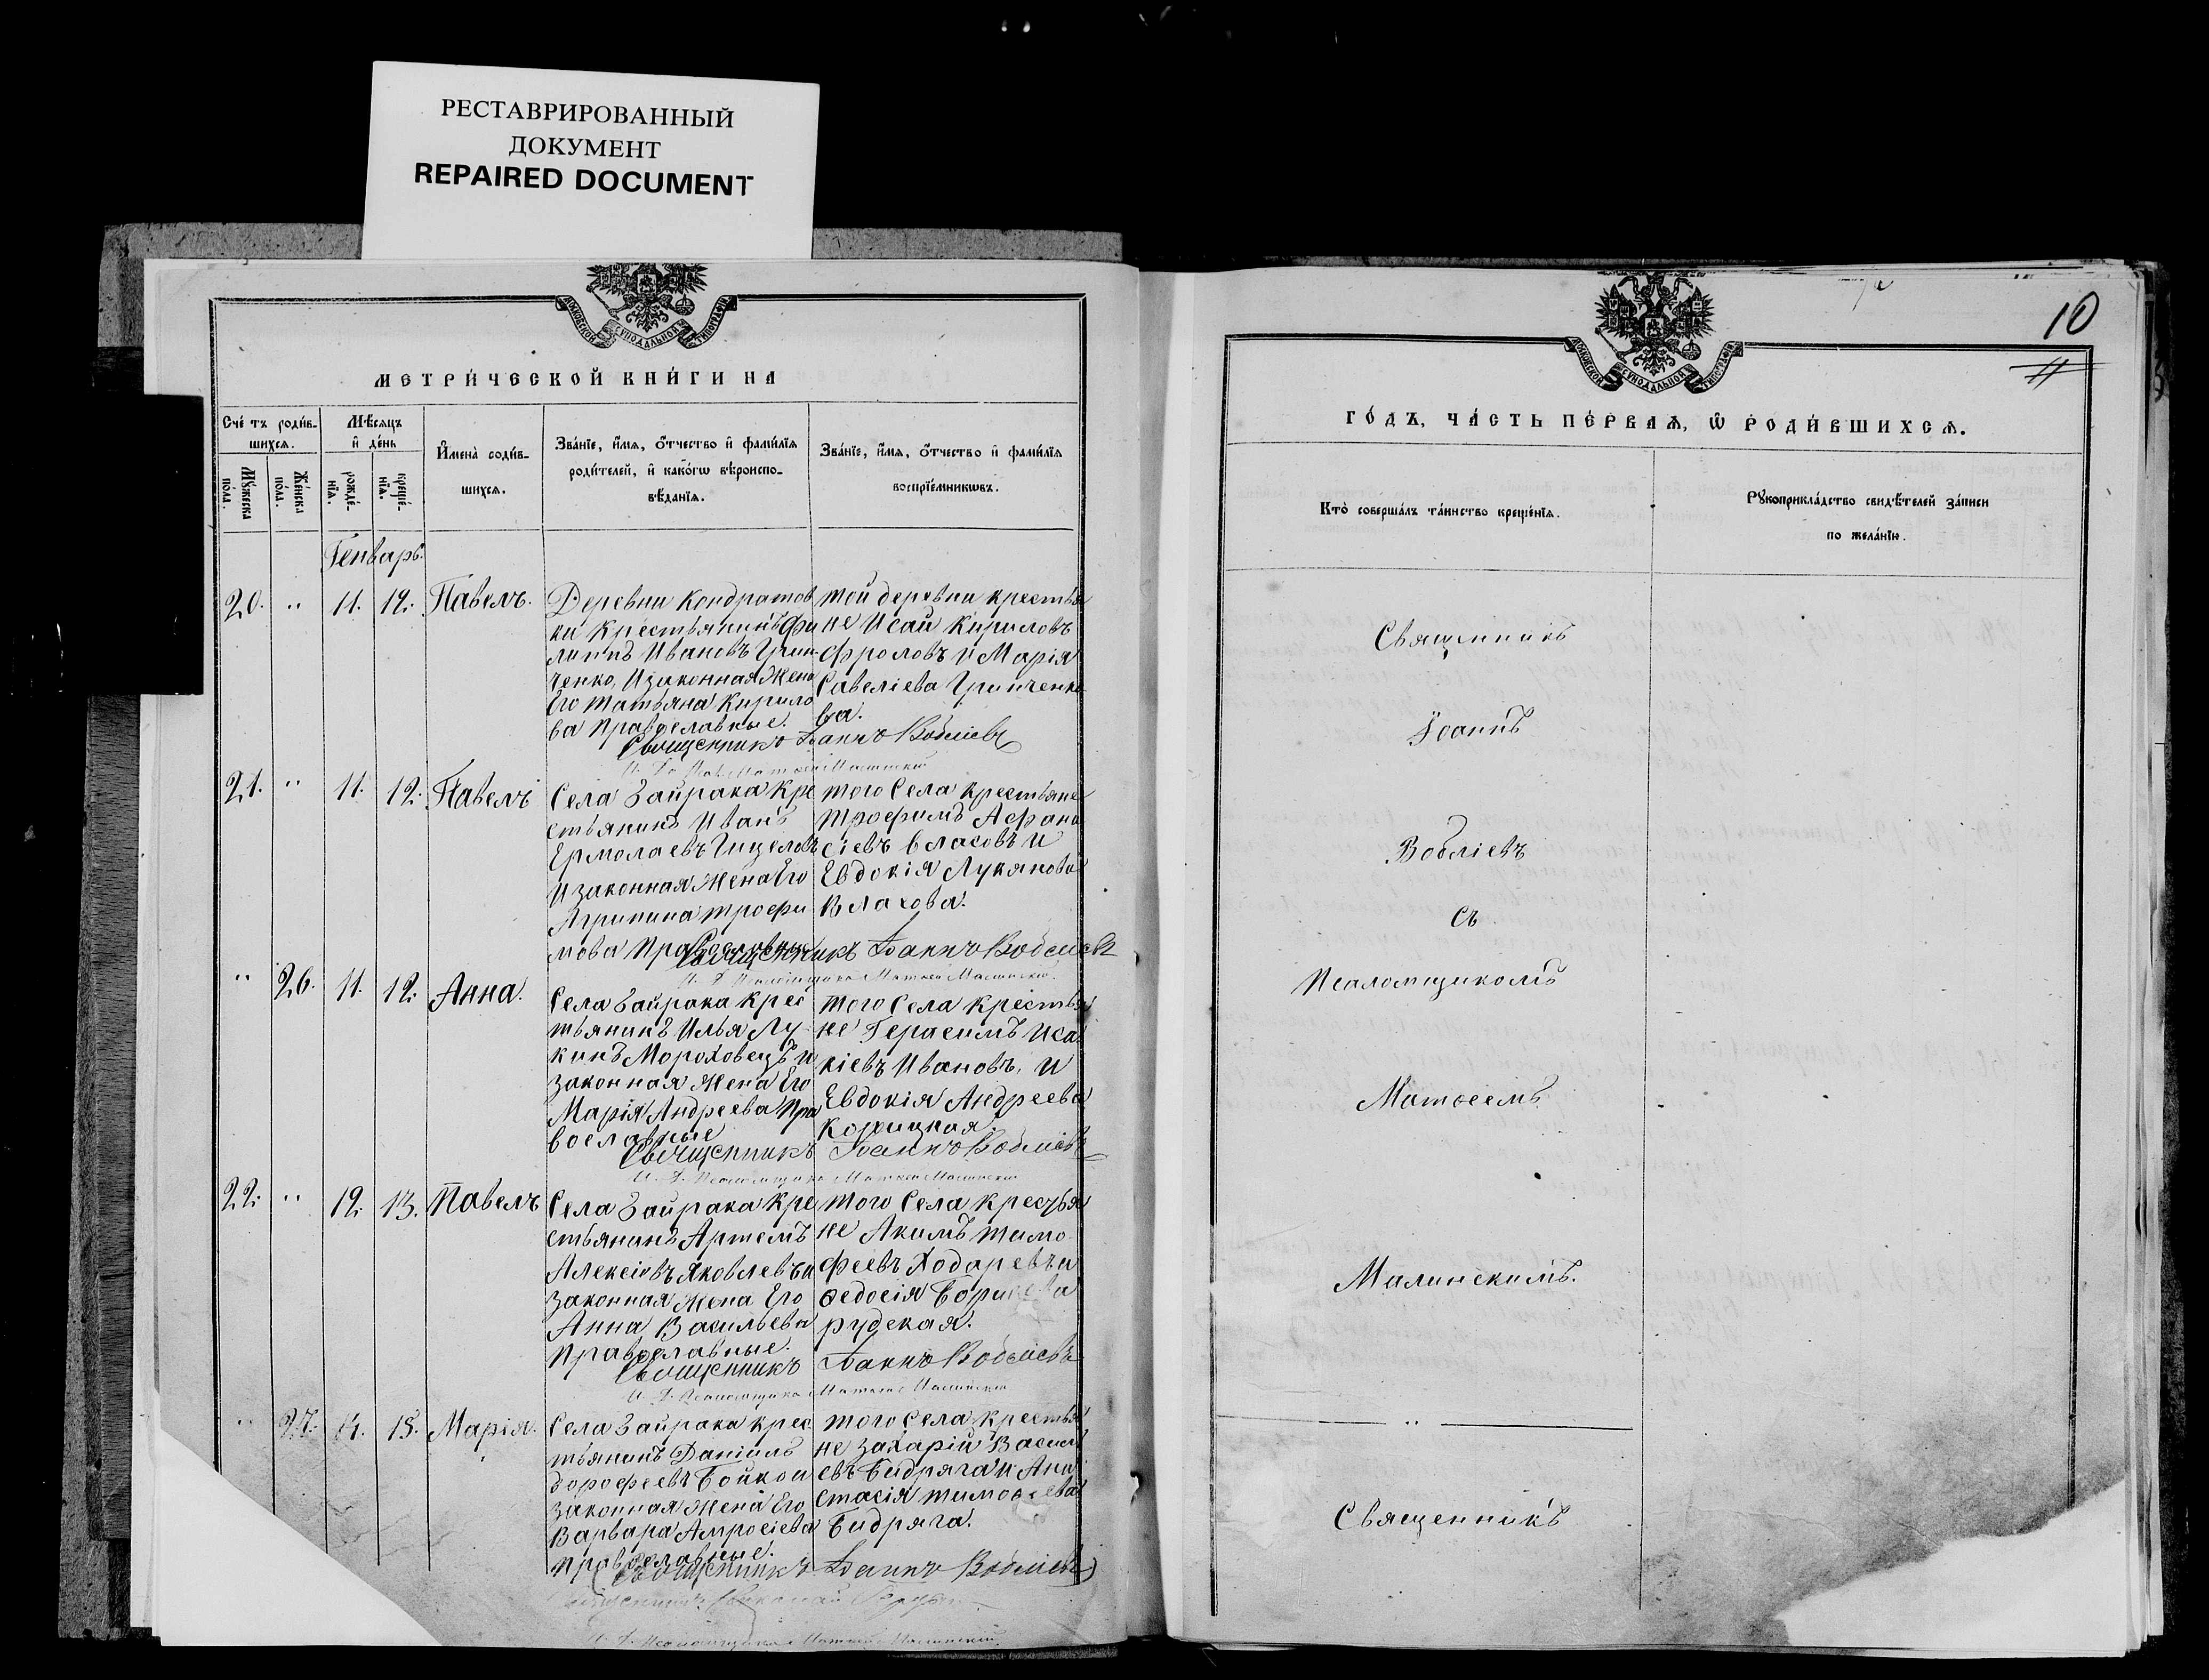 РЕСТАВРИРОВАННЫЙ
ДОКУМЕНТ
REPAIRED DOCUMENT
МОСКОВСКОЙ СѴНОДАЛЬНОЙ ТИПОГРАФІИ
МЕТРИ́ЧЕСКОЙ КНИ́ГИ НА
Сче́тъ роди́в-
шихся.
Мꙋ́жеска
по́ла.
Же́нска
по́ла.
Мѣ́сяцъ
и҆ де́нь
рожде́-
нїя.
креще́-
нїя.
И҆мена̀ роди́в-
шихся.
Зва́нїе, и҆́мя, ѻ҆́тчество и҆ фами́лїя
роди́телей, и҆ како́гѡ вѣроиспо-
вѣ́данїя.
Зва́нїе, и҆́мя, ѻ҆́тчество и҆ фами́лїя
воспрїе́мникѡвъ.
Генварь.
20. " 11. 12. Павелъ.
Деревни Кондратов
ки Крестьянинъ Фи
липпъ Ивановъ Грин
ченко, И законная Жена
Его Татьяна Кирило
ва Православные.
той деревни крестья
не Исай Кириловъ
Фроловъ и Марія
Савеліева Гринченко
ва.
Священникъ Іоаннъ Вобліевъ
21. " 11. 12. Павелъ
Села Зайрака Кре
стьянинъ Иванъ
Ермолаевъ
И законная Жена Его
Агрипина Трофи
мова Православные
того Села Крестьяне
Трофимъ Афана
сіевъ Власовъ и
Евдокія Лукянова
Влахова.
Священникъ Іоаннъ Вобліевъ
И. Д. Псаломщика Матвей Малинскій.
" 26. 11. 12. Анна.
Села Зайрака Крес
тьянинъ Илья Лу
кинъ Мороховецъ и
законная Жена Его
Марія Андреева Пра
вославные
того Села Крестья
не Герасимъ Иса
кіевъ Ивановъ, и
Евдокія Андреева
Священникъ Іоаннъ Вобліевъ
И. Д. Псаломщика Матвей Малинскій
22. " 12. 13. Павелъ
Села Зайрака Кре
стьянинъ Артемъ
Алексіевъ Яковлевъ и
законная Жена Его
Анна Васильева
Православные.
того Села Крестья
не Акимъ Тимо
феевъ Ходаревъ и
Ѳедосія Борисова
рудская.
Священникъ Іоаннъ Вобліевъ
И. Д. Псаломщика Матвей Малинскій
" 27. 14. 15. Марія.
Села Зайрака крес
тьянинъ Даніилъ
Дорофеевъ Бойко и
законная Жена Его
Варвара Амросіева
Православные.
того Села Крестья
не Захарій Василь
евъ Бидряга и Ана
стасія Тимофеева
Бидряга.
Священникъ Іоаннъ Вобліевъ
И. Д. Псаломщика Матвей Малинскій
10
11
МОСКОВСКОЙ СѴНОДАЛЬНОЙ ТИПОГРАФІИ
ГО́ДЪ, ЧА́СТЬ ПЕ́РВАѦ, Ѽ РОДИ́ВШИХСѦ.
Кто̀ соверша́лъ та́инство креще́нїя.
Рꙋкоприкла́дство свидѣ́телей за́писи
по жела́нїю.
Священникъ
Іоаннъ
Вобліевъ
съ
Псаломщикомъ
Матѳеемъ
Малинскимъ.
"
Священникъ